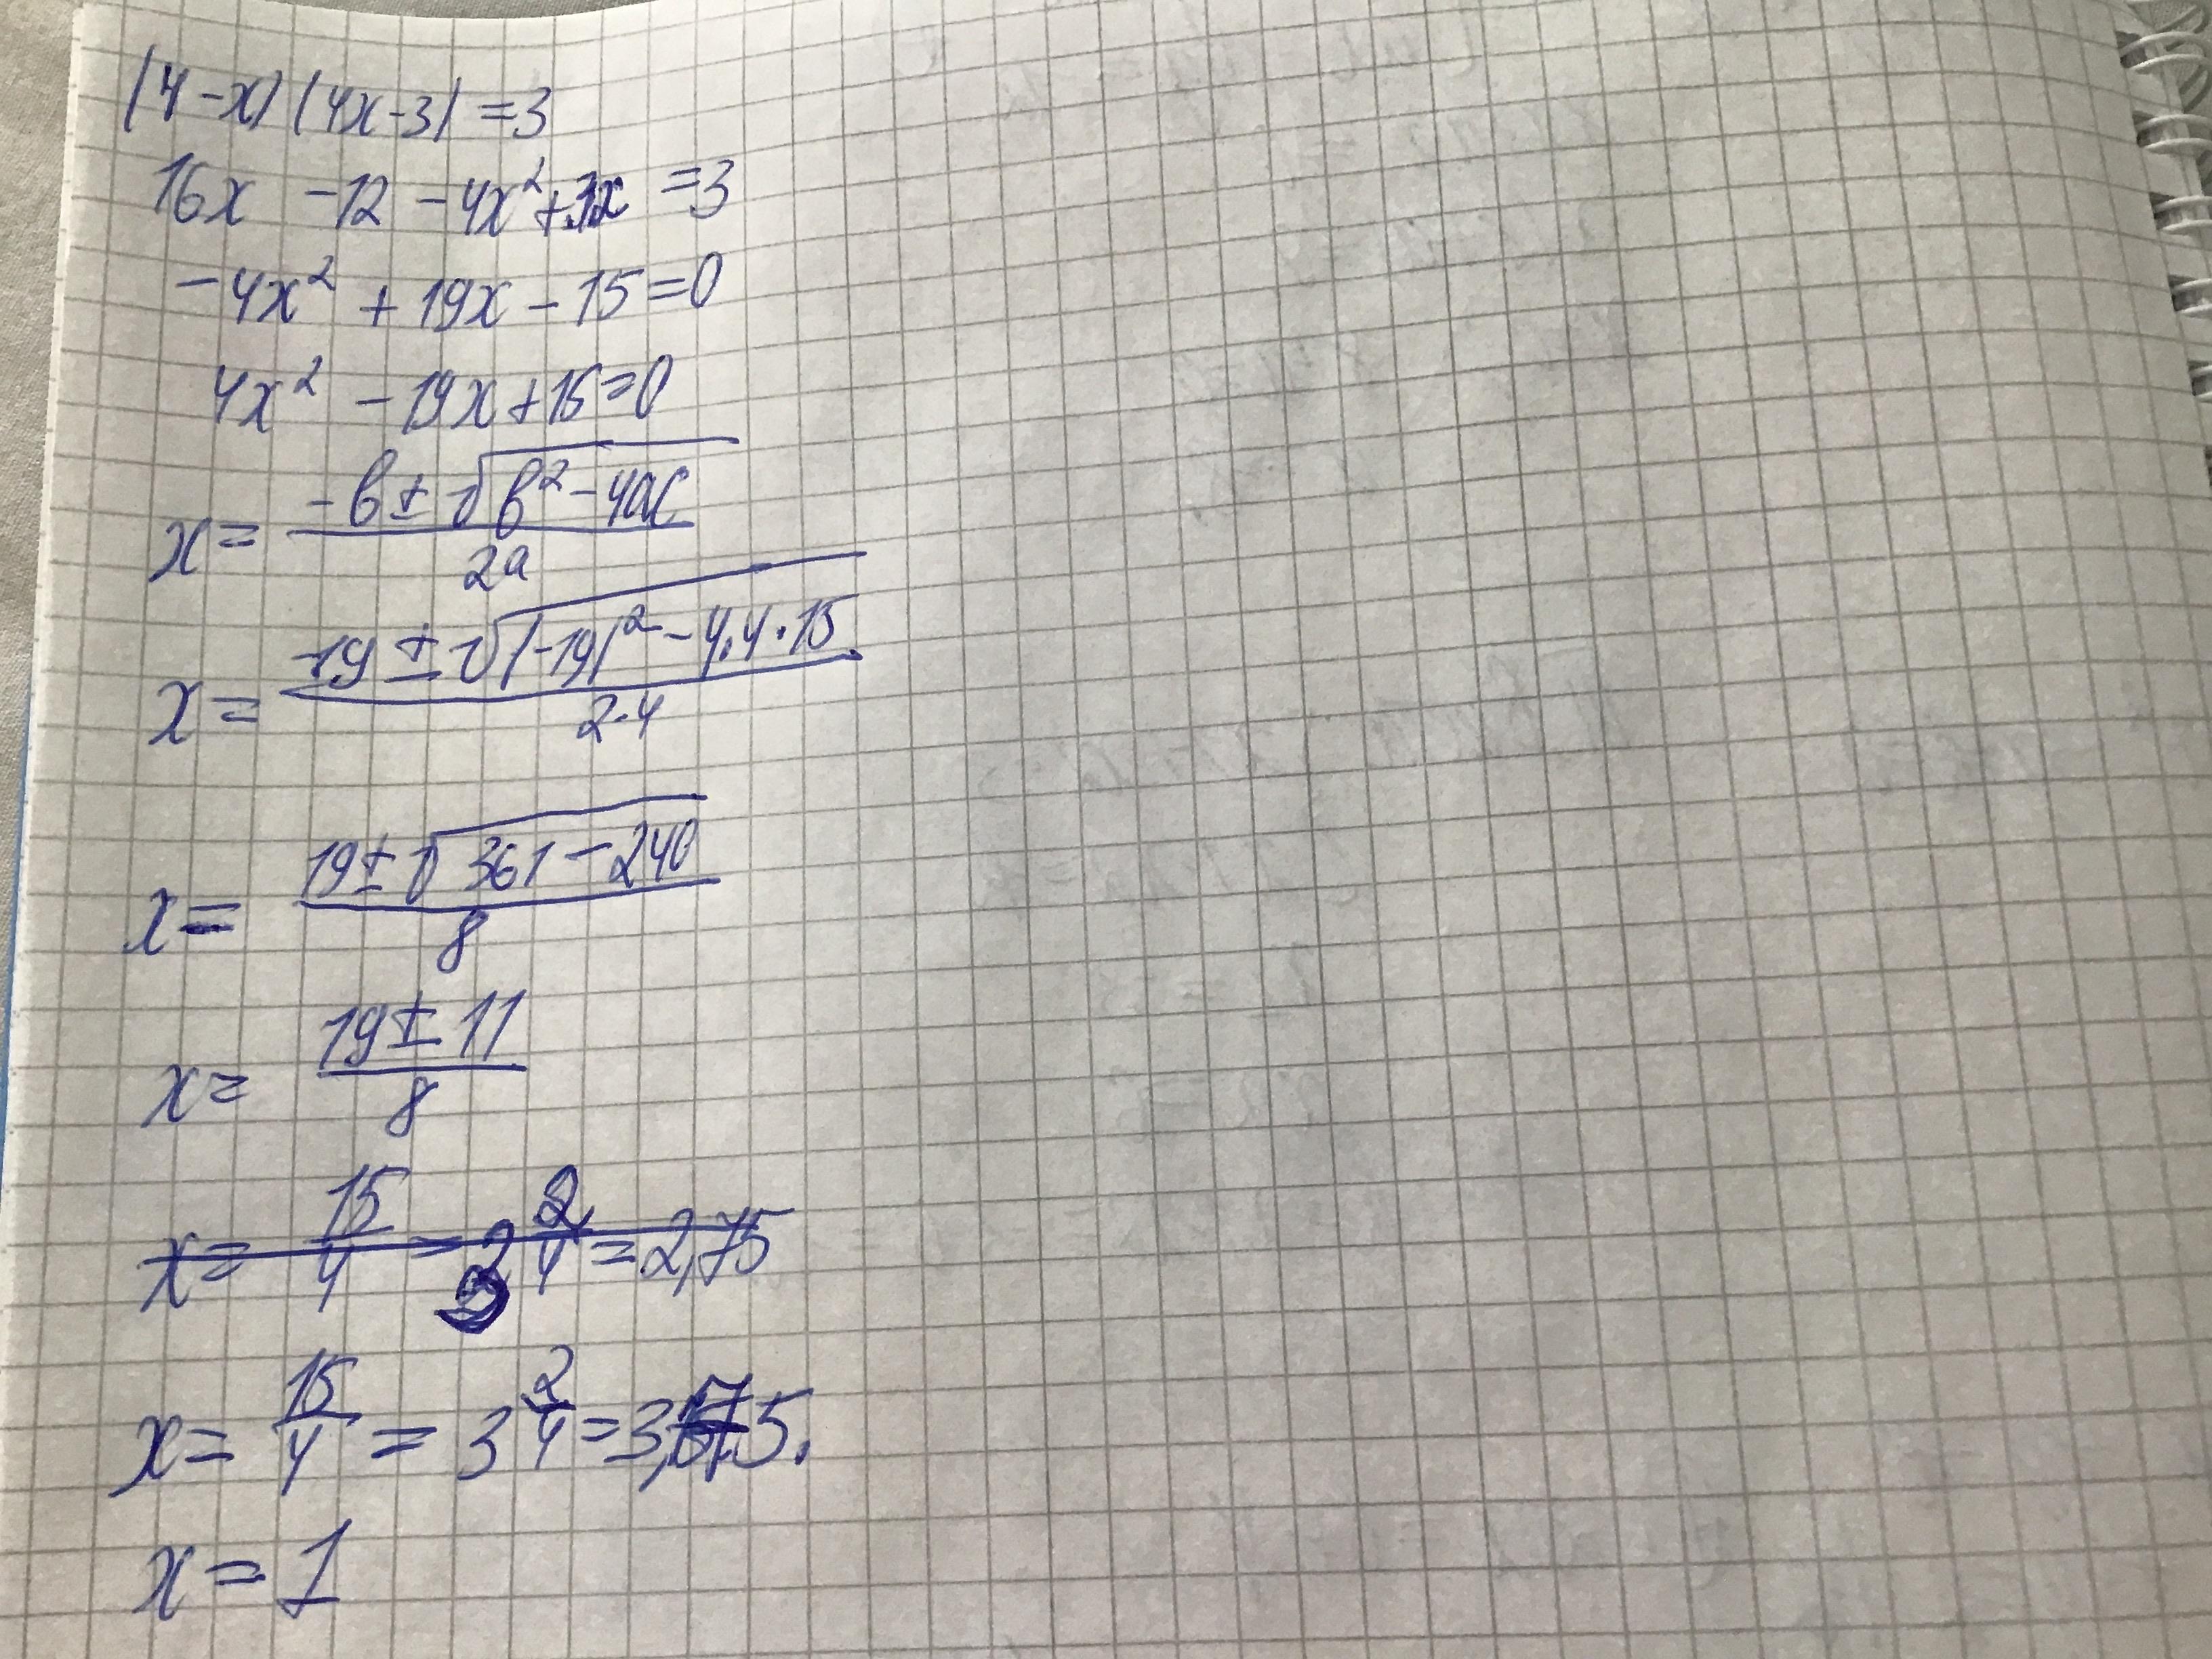 (4-x)(4x-3)=3
16x -12 -4x²+3x =3
-4x² +19x-15=0
4x² -19x+15=0
x= (-b±√(b²-4ac))/(2a)
x= (-19±√((-19)²-4·4·15))/(2·4)
x= (19±√(361-240))/8
x= (19±11)/8
x= 15/4 = 2 2/4 =2,75
x= 15/4 = 3 2/4 =3,75.
x=1